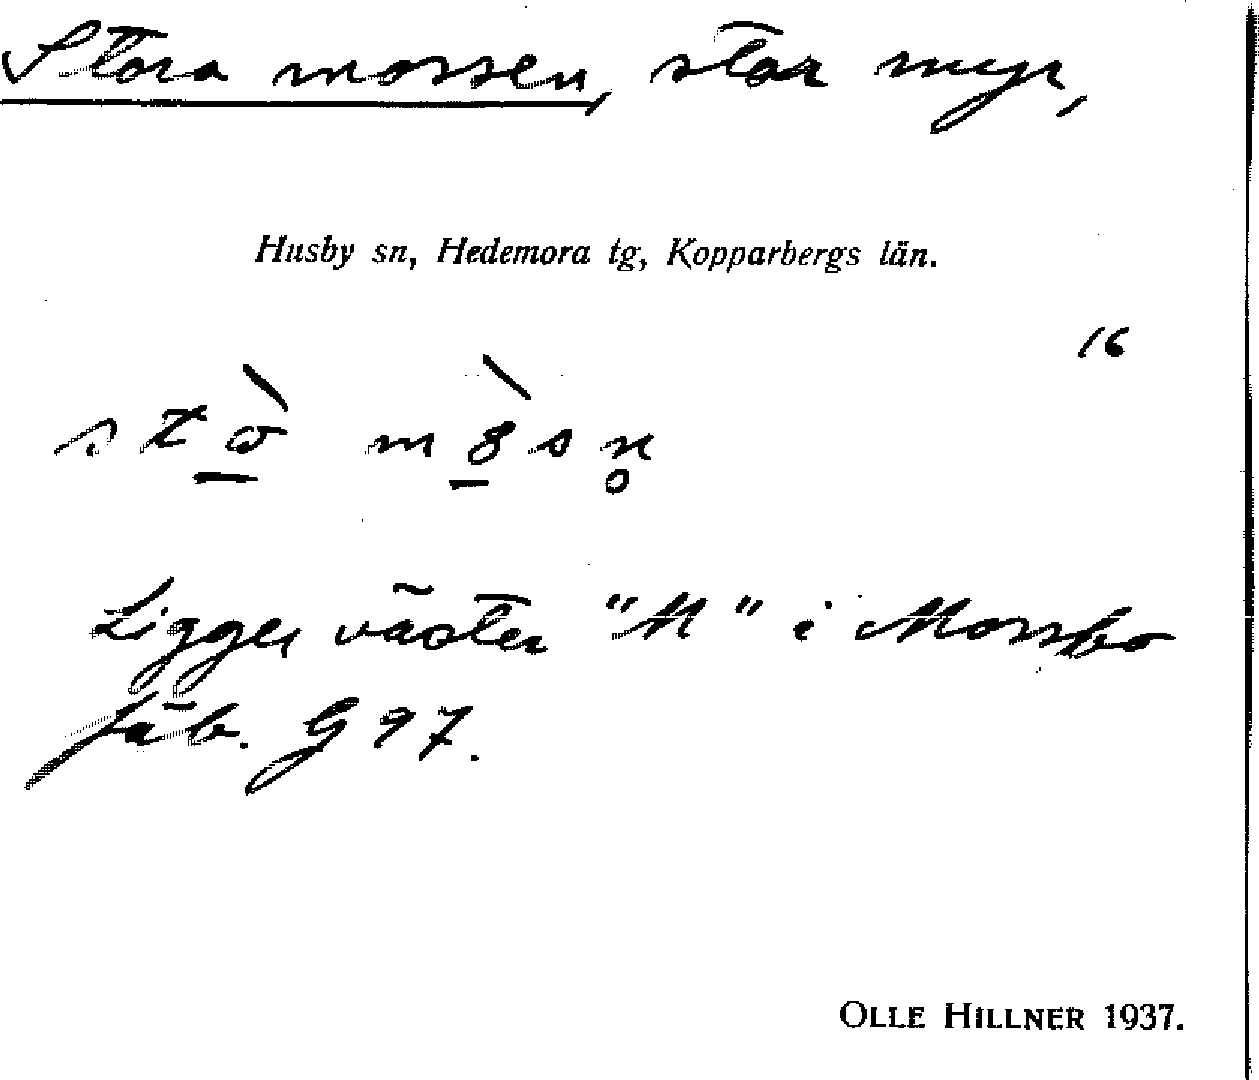 Stora mossen, stor myr,
Husby sn, Hedemora tg, Kopparbergs län.
16
Ligger väster "M" i Mossbo
fäb. G 97.
OLLE HILLNER 1937.